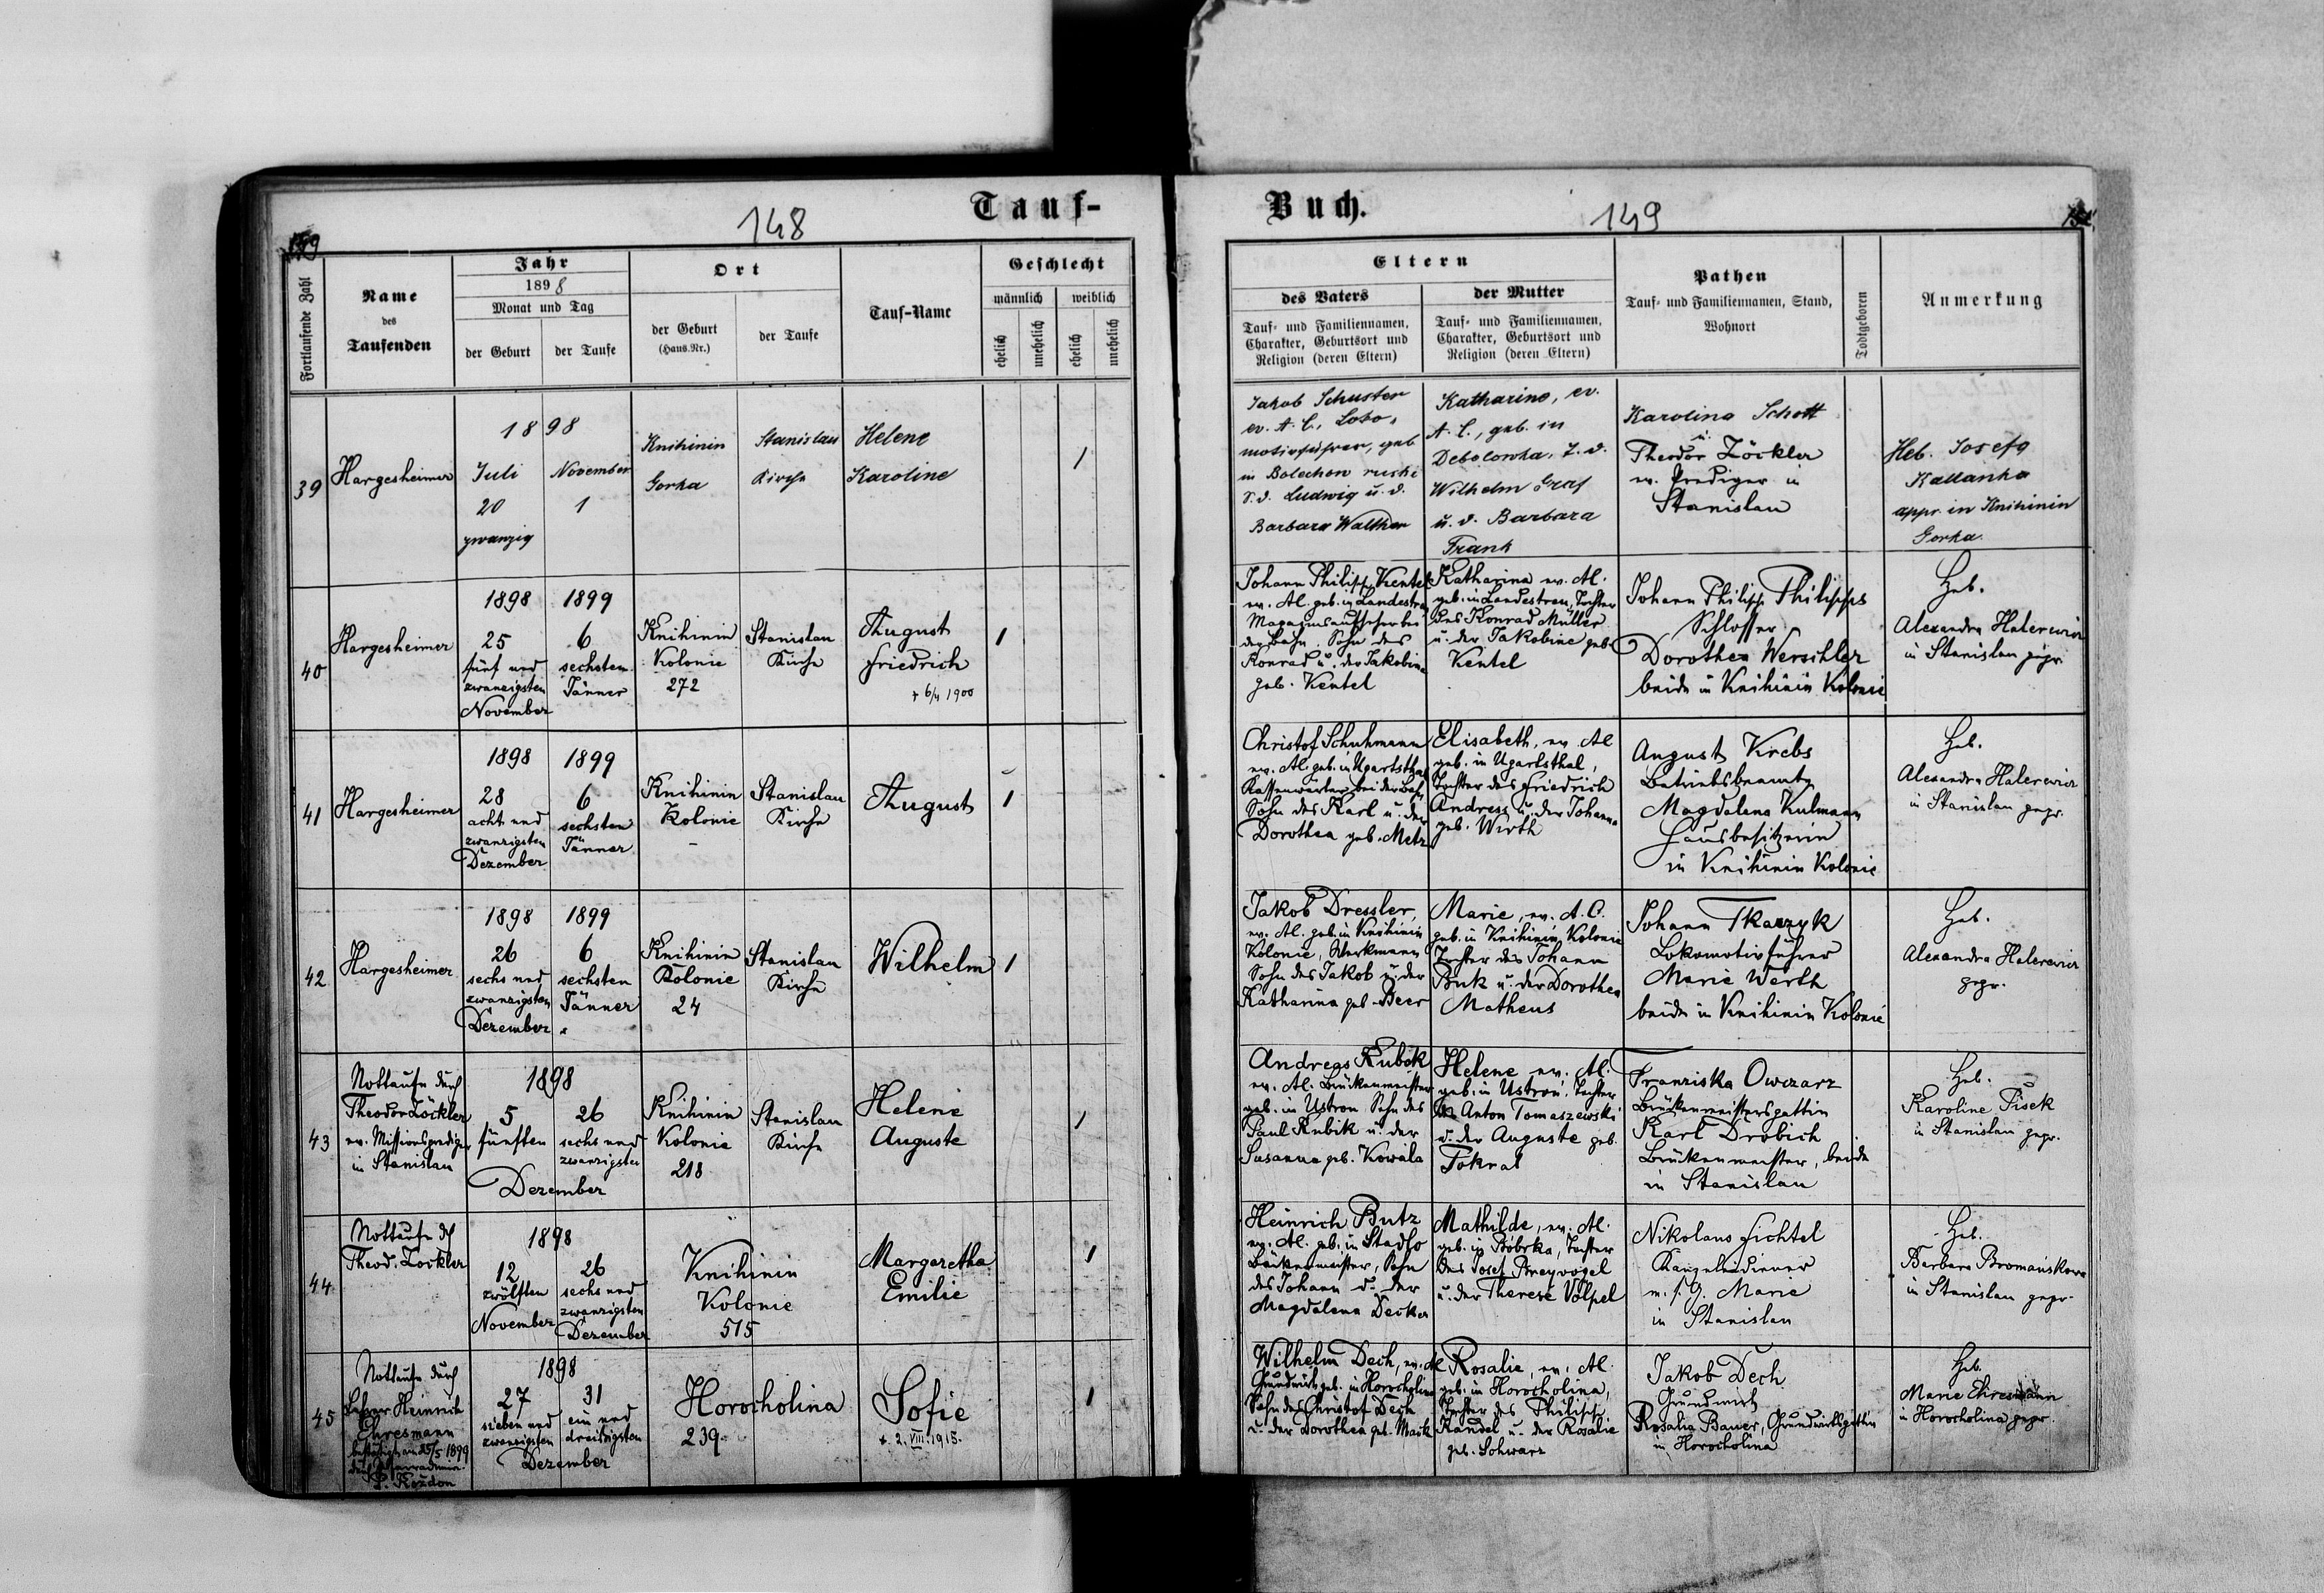 Tauf-
148
Fortlaufende Zahl
Name
des
Taufenden
Jahr
1898
Monat und Tag
der Geburt
der Taufe
Ort
der Geburt
(Haus-Nr.)
der Taufe
Tauf-Name
Geschlecht
männlich
weiblich
ehelich
unehelich
ehelich
unehelich
39
Hargesheimer
1898
Juli
20
zwanzig
November
1
Knihinin
Gorka
Stanislau
Kirche
Helene
Karoline
1
40
Hargesheimer
1898
25
fünf und
zwanzigsten
November
1899
6
sechsten
Jänner
Knihinin
Kolonie
272
Stanislau
Kirche
August
Friedrich
+ 6/4 1900
1
41
Hargesheimer
1898
28
acht und
zwanzigsten
Dezember
1899
6
sechsten
Jänner
Knihinin
Kolonie
-
Stanislau
Kirche
August
1
42
Hargesheimer
1898
26
sechs und
zwanzigsten
Dezember
1899
6
sechsten
Jänner
Knihinin
Kolonie
24
Stanislau
Kirche
Wilhelm
1
43
Nottaufe durch
Theodor Zöckler
ev. Missionsprediger
in Stanislau
1898
5
fünften
26
sechs und
zwanzigsten
Dezember
Knihinin
Kolonie
218
Stanislau
Kirche
Helene
Auguste
1
44
Nottaufe dch
Theod. Zöckler
1898
12
zwölften
November
26
sechs und
zwanzigsten
Dezember
Knihinin
Kolonie
515
Margaretha
Emilie
1
45
Nottaufe durch
Lehrer Heinrich
Ehresmann
bestätigt am 25/5 1899
1898
27
sieben und
zwanzigsten
31
ein und
dreißigsten
Dezember
Horocholina
239
Sofie
+ 2. VIII. 1915.
1
Buch.
149
Eltern
des Vaters
Tauf- und Familiennamen,
Charakter, Geburtsort und
Religion (deren Eltern)
der Mutter
Tauf- und Familiennamen,
Charakter, Geburtsort und
Religion (deren Eltern)
Pathen
Tauf- und Familiennamen, Stand,
Wohnort
Todtgeboren
Anmerkung
Jakob Schuster
ev. A. C., Loko-
motivführer, geb
in Bolechow ruski
S. d. Ludwig u. d.
Barbara Walther
Katharina, ev.
A. C., geb. in
Debolowka, T. d.
Wilhelm Graf
u. d. Barbara
Frank
Karolina Schott
u.
Theodor Zöckler
ev. Prediger in
Stanislau
Heb. Josefa
Kallanka
appr. in Knihinin
Gorka.
Johann Philipp Kentel
ev. AC. geb. in Landestreu
Magazinsaufseher bei
der Bahn, Sohn des
Konrad u. der Jakobina
geb. Kentel
Katharina ev. AC.
geb. in Landestreu, Tochter
des Konrad Müller
u. der Jakobine geb.
Kentel
Johann Philipp Philipps
Schlosser
Dorothea Werschler
beide in Knihinin Kolonie
Heb.
Alexandra Halerewicz
in Stanislau gepr.
Christof Schuhmann
ev. AC. geb. in Ugartsthal
Kassenwärter bei der Bahn
Sohn des Karl u. der
Dorothea geb. Metz
Elisabeth, ev. AC
geb. in Ugartsthal,
Tochter des Friedrich
Andres u. der Johanna
geb. Wirth
August Krebs
Betriebsbeamter
Magdalena Kulmann
Hausbesitzerin
in Knihinin Kolonie
Heb.
Alexandra Halerewicz
in Stanislau gepr.
Jakob Dressler,
ev. AC. geb. in Knihinin
Kolonie, Werkmann
Sohn des Jakob u. der
Katharina geb. Beer
Marie, ev. A. C.
geb. in Knihinin Kolonie
Tochter des Johann
Buk u. der Dorothea
Matheus
Johann Tkaczyk
Lokomotivführer
Marie Werth
beide in Knihinin Kolonie
Heb.
Alexandra Halerewicz
gepr.
Andreas Kubik
ev. AC. Brückenmeister
geb. in Ustron Sohn des
Paul Kubik u. der
Susanna geb. Kowala
Helene ev. AC.
geb. in Ustron, Tochter
des Anton Tomaszewski
u. der Auguste geb.
Franziska Owczarz
Brückenmeistersgattin
Karl Drobich
Brückenmeister, beide
in Stanislau
Heb.
Karoline Pisek
in Stanislau gepr.
Heinrich Butz
ev. AC. geb. in Stadlo
Bäckermeister, Sohn
des Johann u. der
Magdalena Decker
Mathilde, ev. AC.
geb. in Bóbrka, Tochter
des Josef Breyvogel
u. der Therese Völpel
Nikolaus Fichtel
Kanzleidiener
m. s. G. Marie
in Stanislau
Heb.
Barbara Bromańskowa
in Stanislau gepr.
Wilhelm Dech, ev. AC
Grundwirth geb. in Horocholina
Sohn des Christof Dech
u. der Dorothea geb. Mack
Rosalie, ev. AC.
geb. in Horocholina,
Tochter des Philipp
Kandel u. der Rosalie
geb. Schwarz
Jakob Dech
Grundwirt
Rosalia Bauer, Grundwirtsgattin
in Horocholina
Heb.
Marie Ehresmann
in Horocholina gepr.